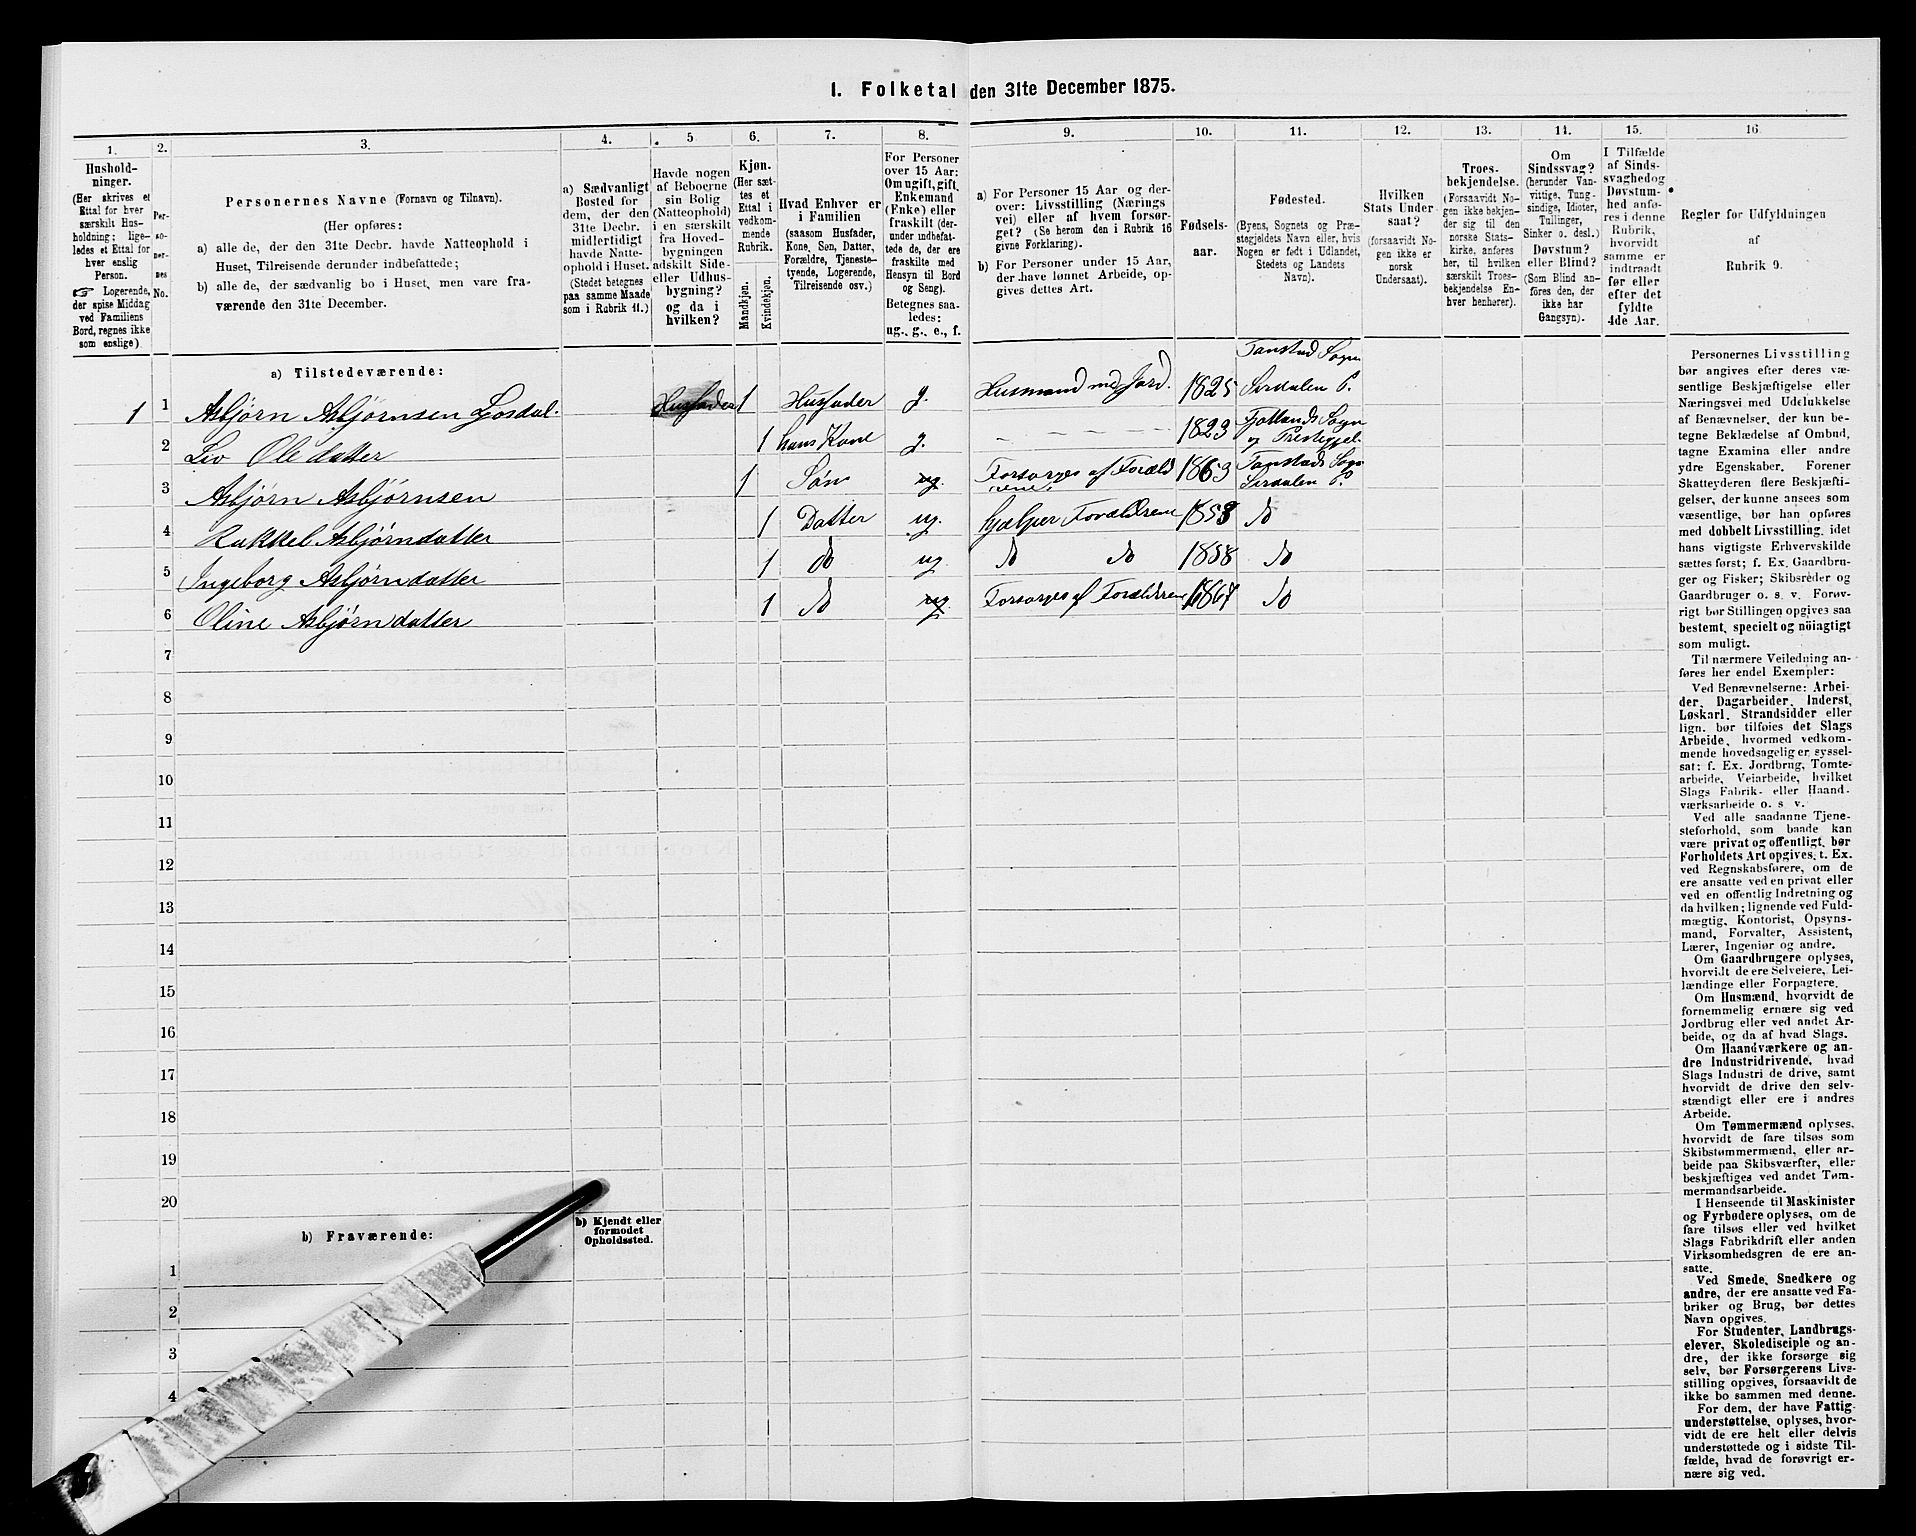 I. Folketal den 31te December 1875.
1.
2.
3.
4.
5
6.
7.
8.
9.
10.
11.
12.
13.
14.
15.
16.
Hushold-
ninger.
(Her skrives et
Ettal for hver
særskilt Hus-
holdning; lige-
ledes et Ettal for
hver enslig
Person.
☞ Logerende,
der spise Middag
ved Familiens
Bord, regnes ikke
som enslige).
Per-
so-
ner-
nes
No.
Personernes Navne (Fornavn og Tilnavn).
(Her opføres:
a) alle de, der den 31te Decbr. havde Natteophold i
Huset, Tilreisende derunder indbefattede;
b) alle de, der sædvanlig bo i Huset, men vare fra-
værende den 31te December.
a) Sædvanligt
Bosted for
dem, der den
31te Decbr.
midlertidigt
havde Natte-
ophold i Huset.
(Stedet betegnes
paa samme Maade
som i Rubrik 11.)
Havde nogen
af Beboerne
sin Bolig
(Natteophold)
i en særskilt
fra Hoved-
bygningen
adskilt Side-
eller Udhus-
bygning?
og da i
hvilken?
Kjøn.
(Her sæt-
tes et
Ettal i
vedkom-
mende
Rubrik.
Mandkjøn.
Kvindekjøn.
Hvad Enhver er
i Familien
(saasom Husfader,
Kone, Søn, Datter,
Forældre, Tjeneste-
tyende, Logerende,
Tilreisende osv.)
For Personer
over 15 Aar:
Om ugift, gift,
Enkemand
(Enke) eller
fraskilt (der-
under indbefat-
tede de, der ere
fraskilte med
Hensyn til Bord
og Seng).
Betegnes saa-
ledes:
ug., g., e., f.
a) For Personer 15 Aar og der-
over: Livsstilling (Nærings
vei) eller af hvem forsør-
get? (Se herom den i Rubrik 16
givne Forklaring).
b) For Personer under 15 Aar,
der have lønnet Arbeide, op-
gives dettes Art.
Fødsels-
aar.
Fødested.
(Byens, Sognets og Præ-
stegjeldets Navn eller, hvis
Nogen er født i Udlandet,
Stedets og Landets
Navn).
Hvilken
Stats Under
saat?
(forsaavidt No-
gen ikke er
norsk
Undersaat).
Troes-
bekjendelse.
(Forsaavidt No-
gen ikke bekjen-
der sig til den
norske Stats-
kirke, anføres
her, til hvilken
særskilt Troes-
bekjendelse En-
hver henhører).
Om
Sindssvag?
(herunder Van-
vittige, Tung-
sindige, Idioter,
Tullinger,
Sinker o. desl.)
Døvstum?
eller Blind?
(Som Blind an-
føres den, der
ikke har
Gangsyn).
I Tilfælde
af Sinds-
svaghed og
Døvstum-
hed anfø-
res i denne
Rubrik,
hvorvidt
samme er
indtraadt
før eller
efter det
fyldte
4de Aar.
Regler for Udfyldningen
af
Rubrik 9.
a) Tilstedeværende:
1 1 Asbjørn Asbjørnsen Josdal. Husfader 1 Husfader g. Husmand med Jord. 1825 Tonstad Sogn
Sirdalen P.
2 Liv Oledatter 1 hans Kone g. – – – – 1823 Fjotlands Sogn
og Prestegjel.
3 Asbjørn Asbjørnsen 1 Søn ug. Forsørges af Foræld
rene. 1863 Tonstads Sogn
Sirdalen P.
4 Rakkel Asbjørndatter 1 Datter ug. hjælper Forældrene 1853 do
5 Ingeborg Asbjørndatter 1 do ug. do do 1858 do
6 Oline Asbjørndatter 1 do ug. Forsørges af Forældrene 1867 do
7
8
9
10
11
12
13
14
15
16
17
18
19
20
b) Fraværende:
b) Kjendt eller
formodet
Opholdssted.
1
2
3
4
Personernes Livsstilling
bør angives efter deres væ-
sentlige Beskjæftigelse eller
Næringsvei med Udelukkelse
af Benævnelser, der kun be-
tegne Beklædelse af Ombud,
tagne Examina eller andre
ydre Egenskaber. Forener
Skatteyderen flere Beskjæfti-
gelser, der kunne ansees som
væsentlige, bør han opføres
med dobbelt Livsstilling, idet
hans vigtigste Erhvervskilde
sættes først; f. Ex. Gaardbru-
ger og Fisker; Skibsreder og
Gaardbruger o. s. v. Forøv-
rigt bør Stillingen opgives saa
bestemt, specielt og nöiagtigt
som muligt.
Til nærmere Veiledning an-
føres her endel Exempler:
Ved Benævnelserne: Arbei-
der, Dagarbeider, Inderst,
Løskarl, Strandsidder eller
lign. bør tilføies det Slags
Arbeide, hvormed vedkom-
mende hovedsagelig er syssel-
sat: f. Ex. Jordbrug, Tomte-
arbeide, Veiarbeide, hvilket
Slags Fabrik- eller Haand-
værksarbeide o. s v.
Ved alle saadanne Tjene-
steforhold, som baade kan
være privat og offentligt, bør
Forholdets Art opgives, t. Ex.
ved Regnskabsførere, om de
ere ansatte ved en privat eller
ved en offentlig Indretning og
da hvilken; lignende ved Fuld-
mægtig, Kontorist, Opsyns-
mand, Forvalter, Assistent,
Lærer, Ingeniør og andre.
Om Gaardbrugere oplyses,
hvorvidt de ere Selveiere, Lei-
lændinge eller Forpagtere.
Om Husmænd, hvorvidt de
fornemmelig ernære sig ved
Jordbrug eller ved andet Ar-
beide, og da af hvad Slags.
Om Haandværkere og an-
dre Industridrivende, hvad
Slags Industri de drive, samt
hvorvidt de drive den selv-
stændigt eller ere i andres
Arbeide.
Om Tømmermænd oplyses,
hvorvidt de fare tilsøs som
Skibstømmermænd, eller ar-
beide paa Skibsværfter, eller
beskjæftiges ved andet Tøm-
mermandsarbeide.
I Henseende til Maskinister
og Fyrbødere oplyses, om de
fare tilsøs eller ved hvilket
Slags Fabrikdrift eller anden
Virksomhedsgren de ere an-
satte.
Ved Smede, Snedkere og
andre, der ere ansatte ved Fa-
briker og Brug, bør dettes
Navn opgives.
For Studenter, Landbrugs-
elever, Skoledisciple og an-
dre, der ikke forsørge sig
selv, bør Forsørgerens Livs-
stilling opgives, forsaavidt de
ikke bo sammen med denne.
For dem, der have Fattig-
understøttelse, oplyses, hvor-
vidt de ere helt eller delvis
understøttede og i sidste Til-
fælde, hvad de forøvrigt er-
nære sig ved.